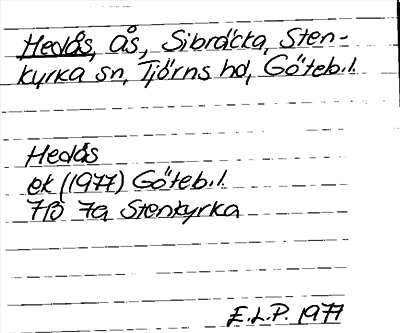 Hedås, Ås, Sibräcka, Sten-
kyrka sn, Tjörns hd, Göteb.l.
Hedås
ek (1977) Göteb.l.
7B 7a Stenkyrka
E.L.P. 1977